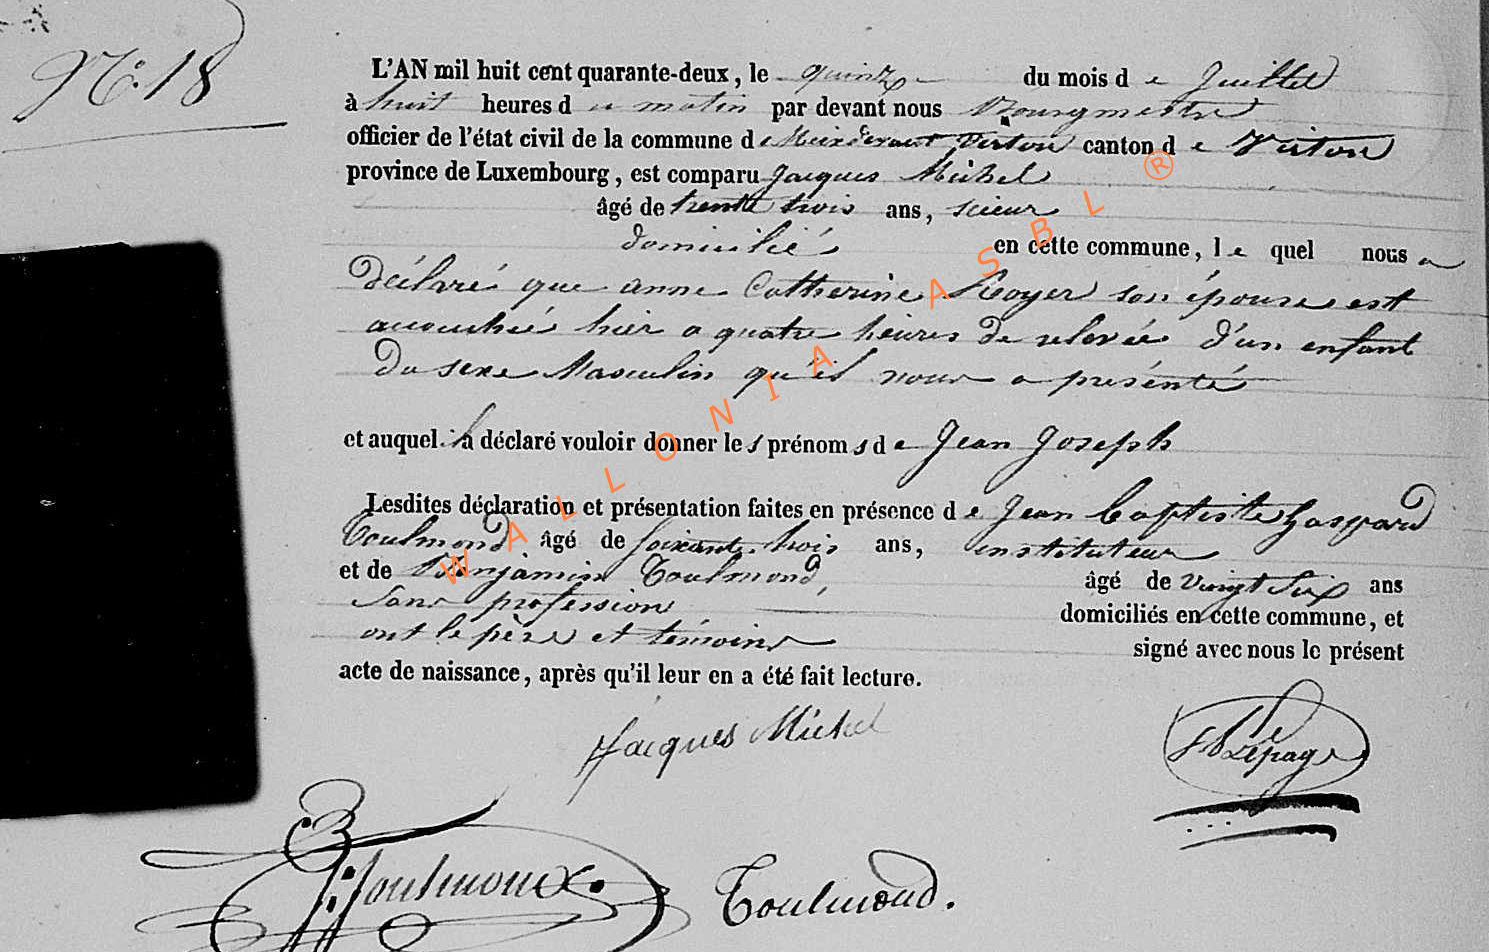 N°. 18
L'AN mil huit cent quarante-deux, le quinze du mois d e Juillet
à huit heures d u matin par devant nous Bourgmestre
officier de l'état civil de la commune d e Meixdevant Virton canton d e Virton
province de Luxembourg, est comparu Jacques Michel
âgé de trente trois ans, scieur
domicilié en cette commune, l e quel nous a
déclaré que anne Catherine Royer son épouse est
accouchée hier a quatre heures de relevée d'un enfant
du sexe Masculin qu'il nous a présenté
et auquel il a déclaré vouloir donner le s prénom s d e Jean Joseph
Lesdites déclaration et présentation faites en présence d e Jean Baptiste Gaspard
Toulmond âgé de soixante trois ans, instituteur
et de Benjamin Toulmond, âgé de vingt six ans
sans profession domiciliés en cette commune, et
ont le père et témoins signé avec nous le présent
acte de naissance, après qu'il leur en a été fait lecture.
Jacques Michel
Lepage
Toulmond
Toulmond.
WALLONIA ASBL ®